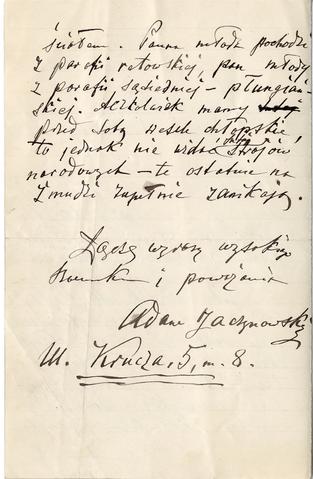 świotem. Panna młoda pochodzi
z parafii retowskiej, pan młody
z parafii sąsiedniej – płungiań-
skiej. Aczkolwiek mamy
przed sobą wesele chłopskie,
to jednak nie widać strojów
narodowych – te ostatnie na
Żmudzi zupełnie zanikają.
Łączę wyrazy wysokiego
szacunku i poważania
Adam
Ul. Krucza, 5, m. 8.